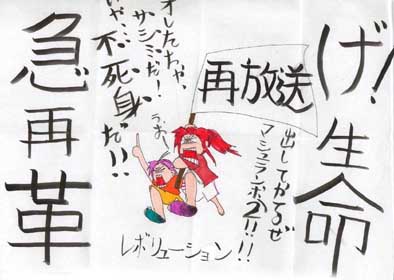 げ!生命
再放送
出してかてるぜ
マシュランボー2!!
オレたちゃ、
サシミだ!
いや…不死身だ!!
うお
レボリューション!!
急再革